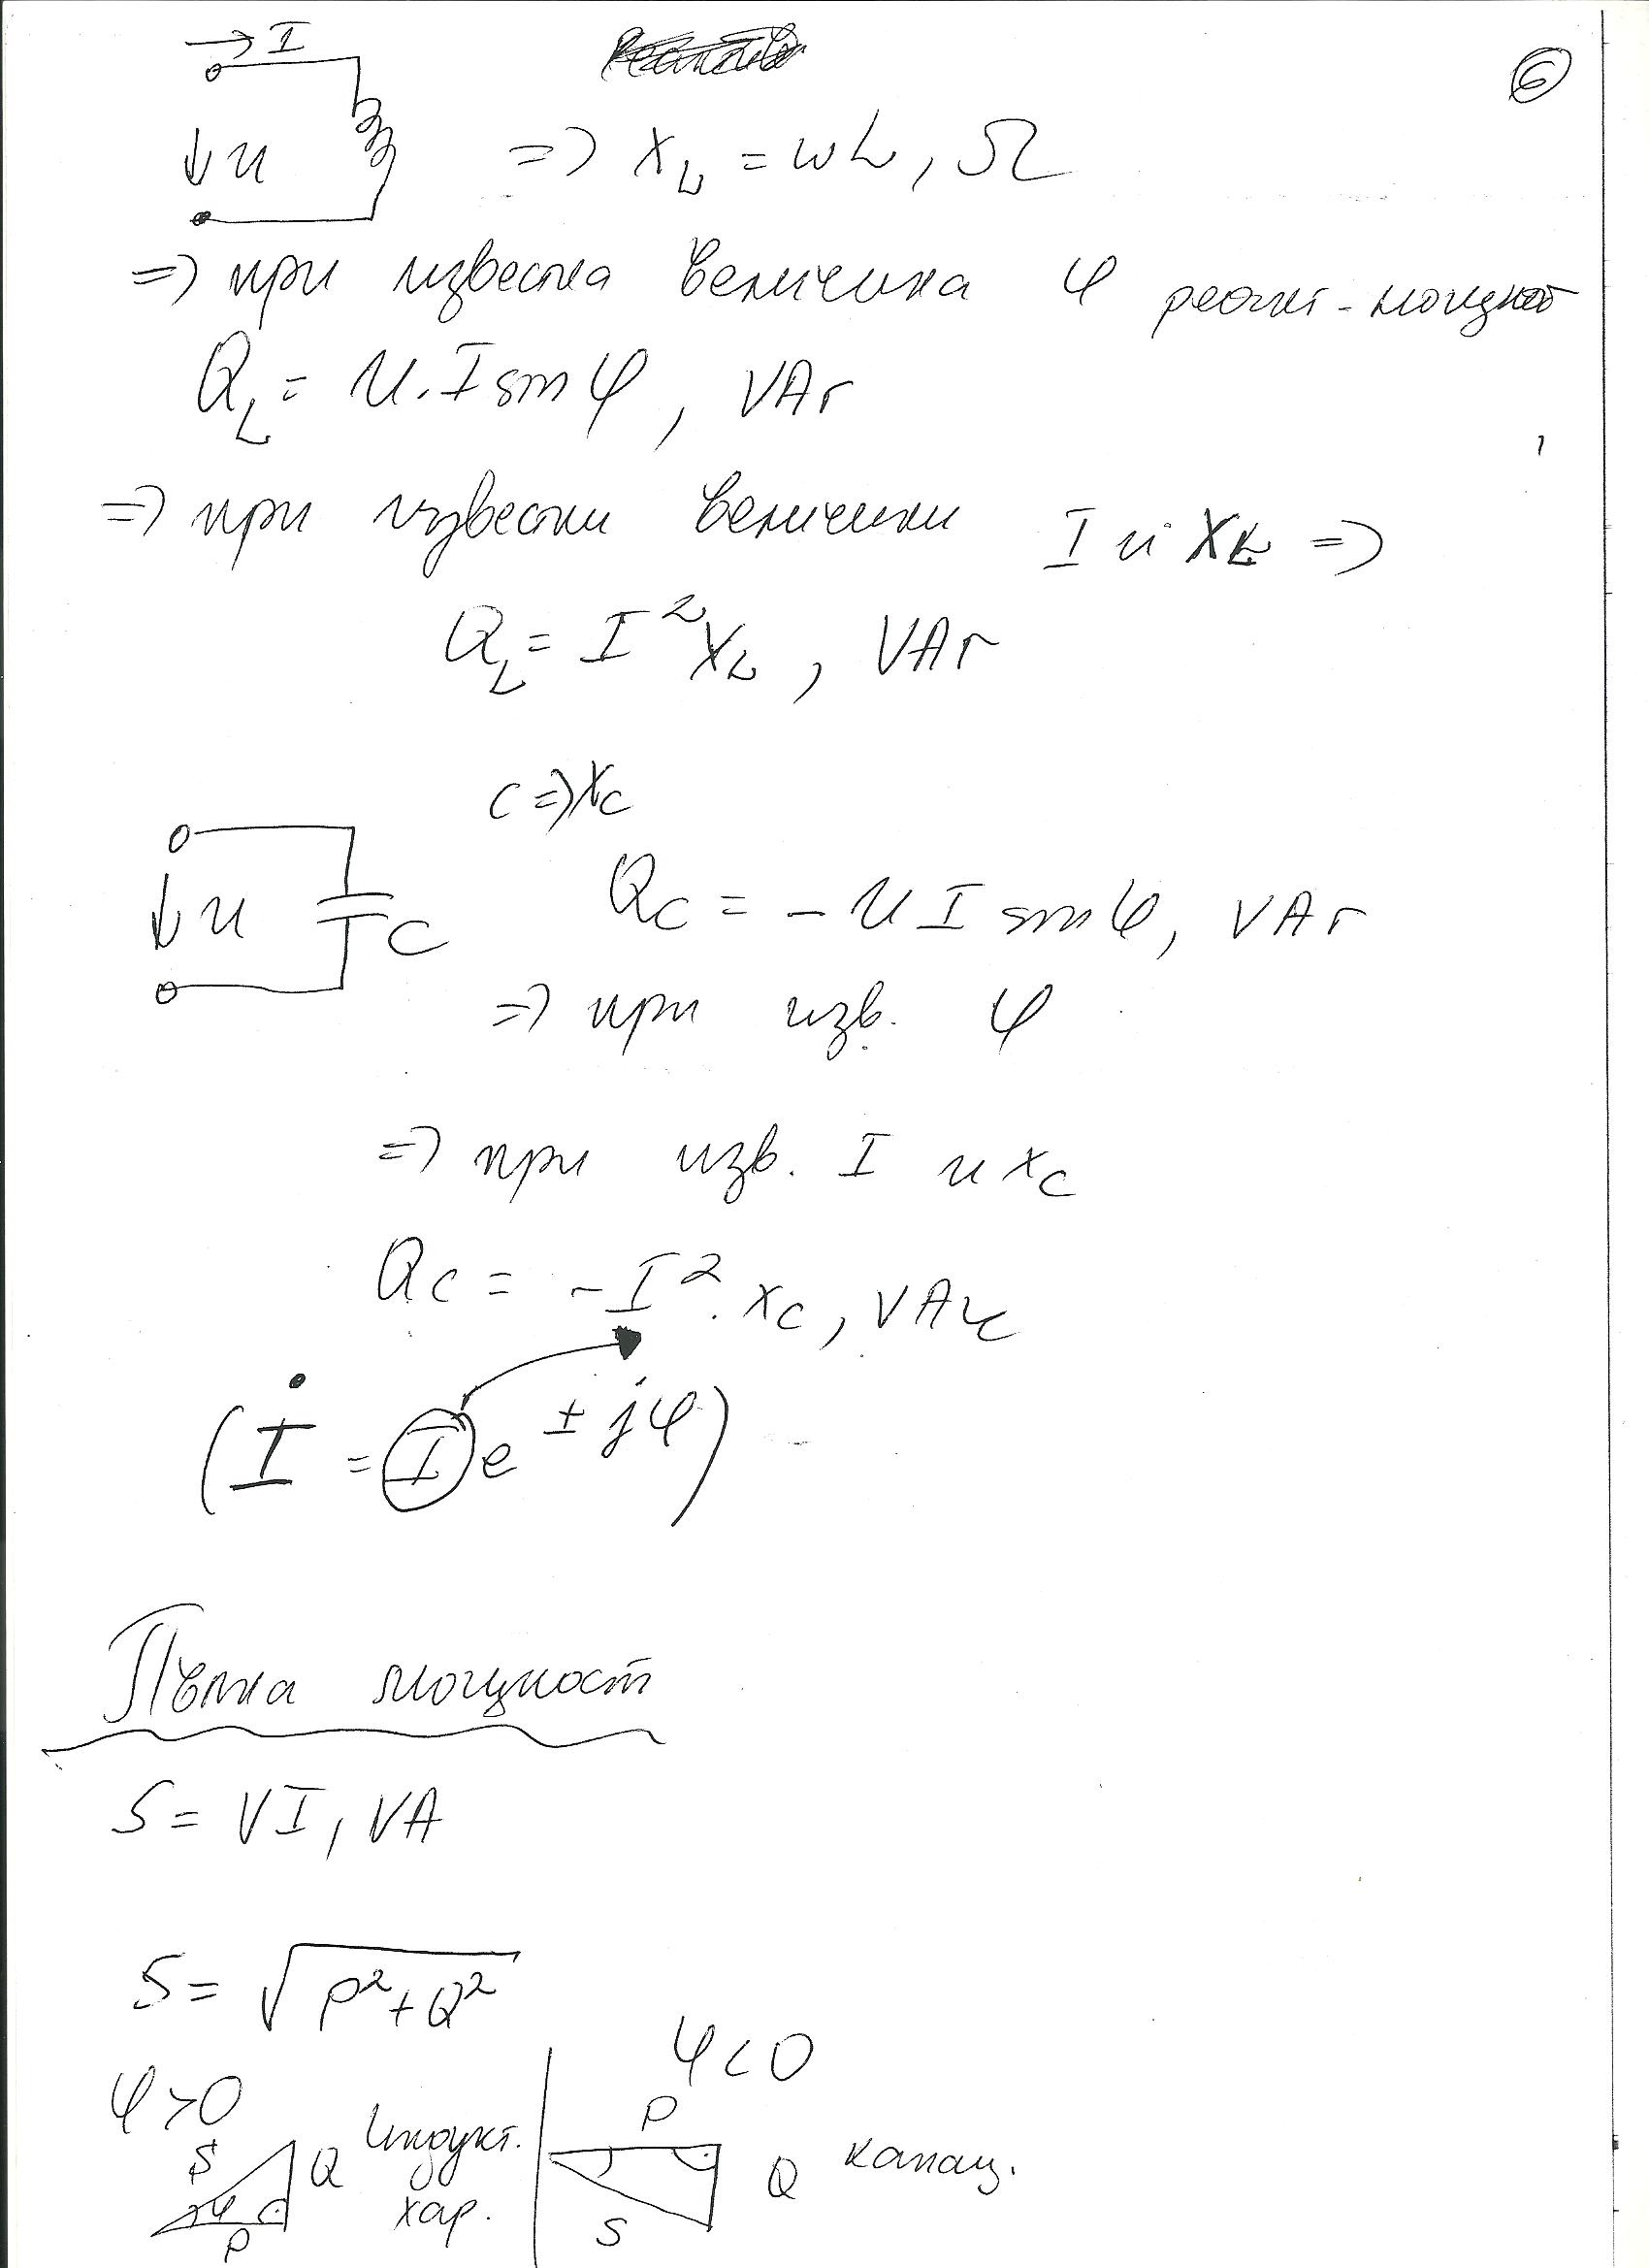 → I
⑥
↓u ⇒ x_L = ωL, Ω
⇒ при известна величина φ реакт. мощност
Q_L = U.I sin φ, VAr
⇒ при известни величини I и X_L ⇒
Q_L = I² X_L, VAr
C ⇒ X_C
↓u C Q_C = - U I sin φ, VAr
⇒ при изв. φ
⇒ при изв. I и x_C
Q_C = - I² . x_C, VAr
(İ = I e^{± jφ})
Пълна мощност
S = VI, VA
S = √(P² + Q²)
φ > 0 φ < 0
S φ P Q Индукт. хар.
P Q S капац.